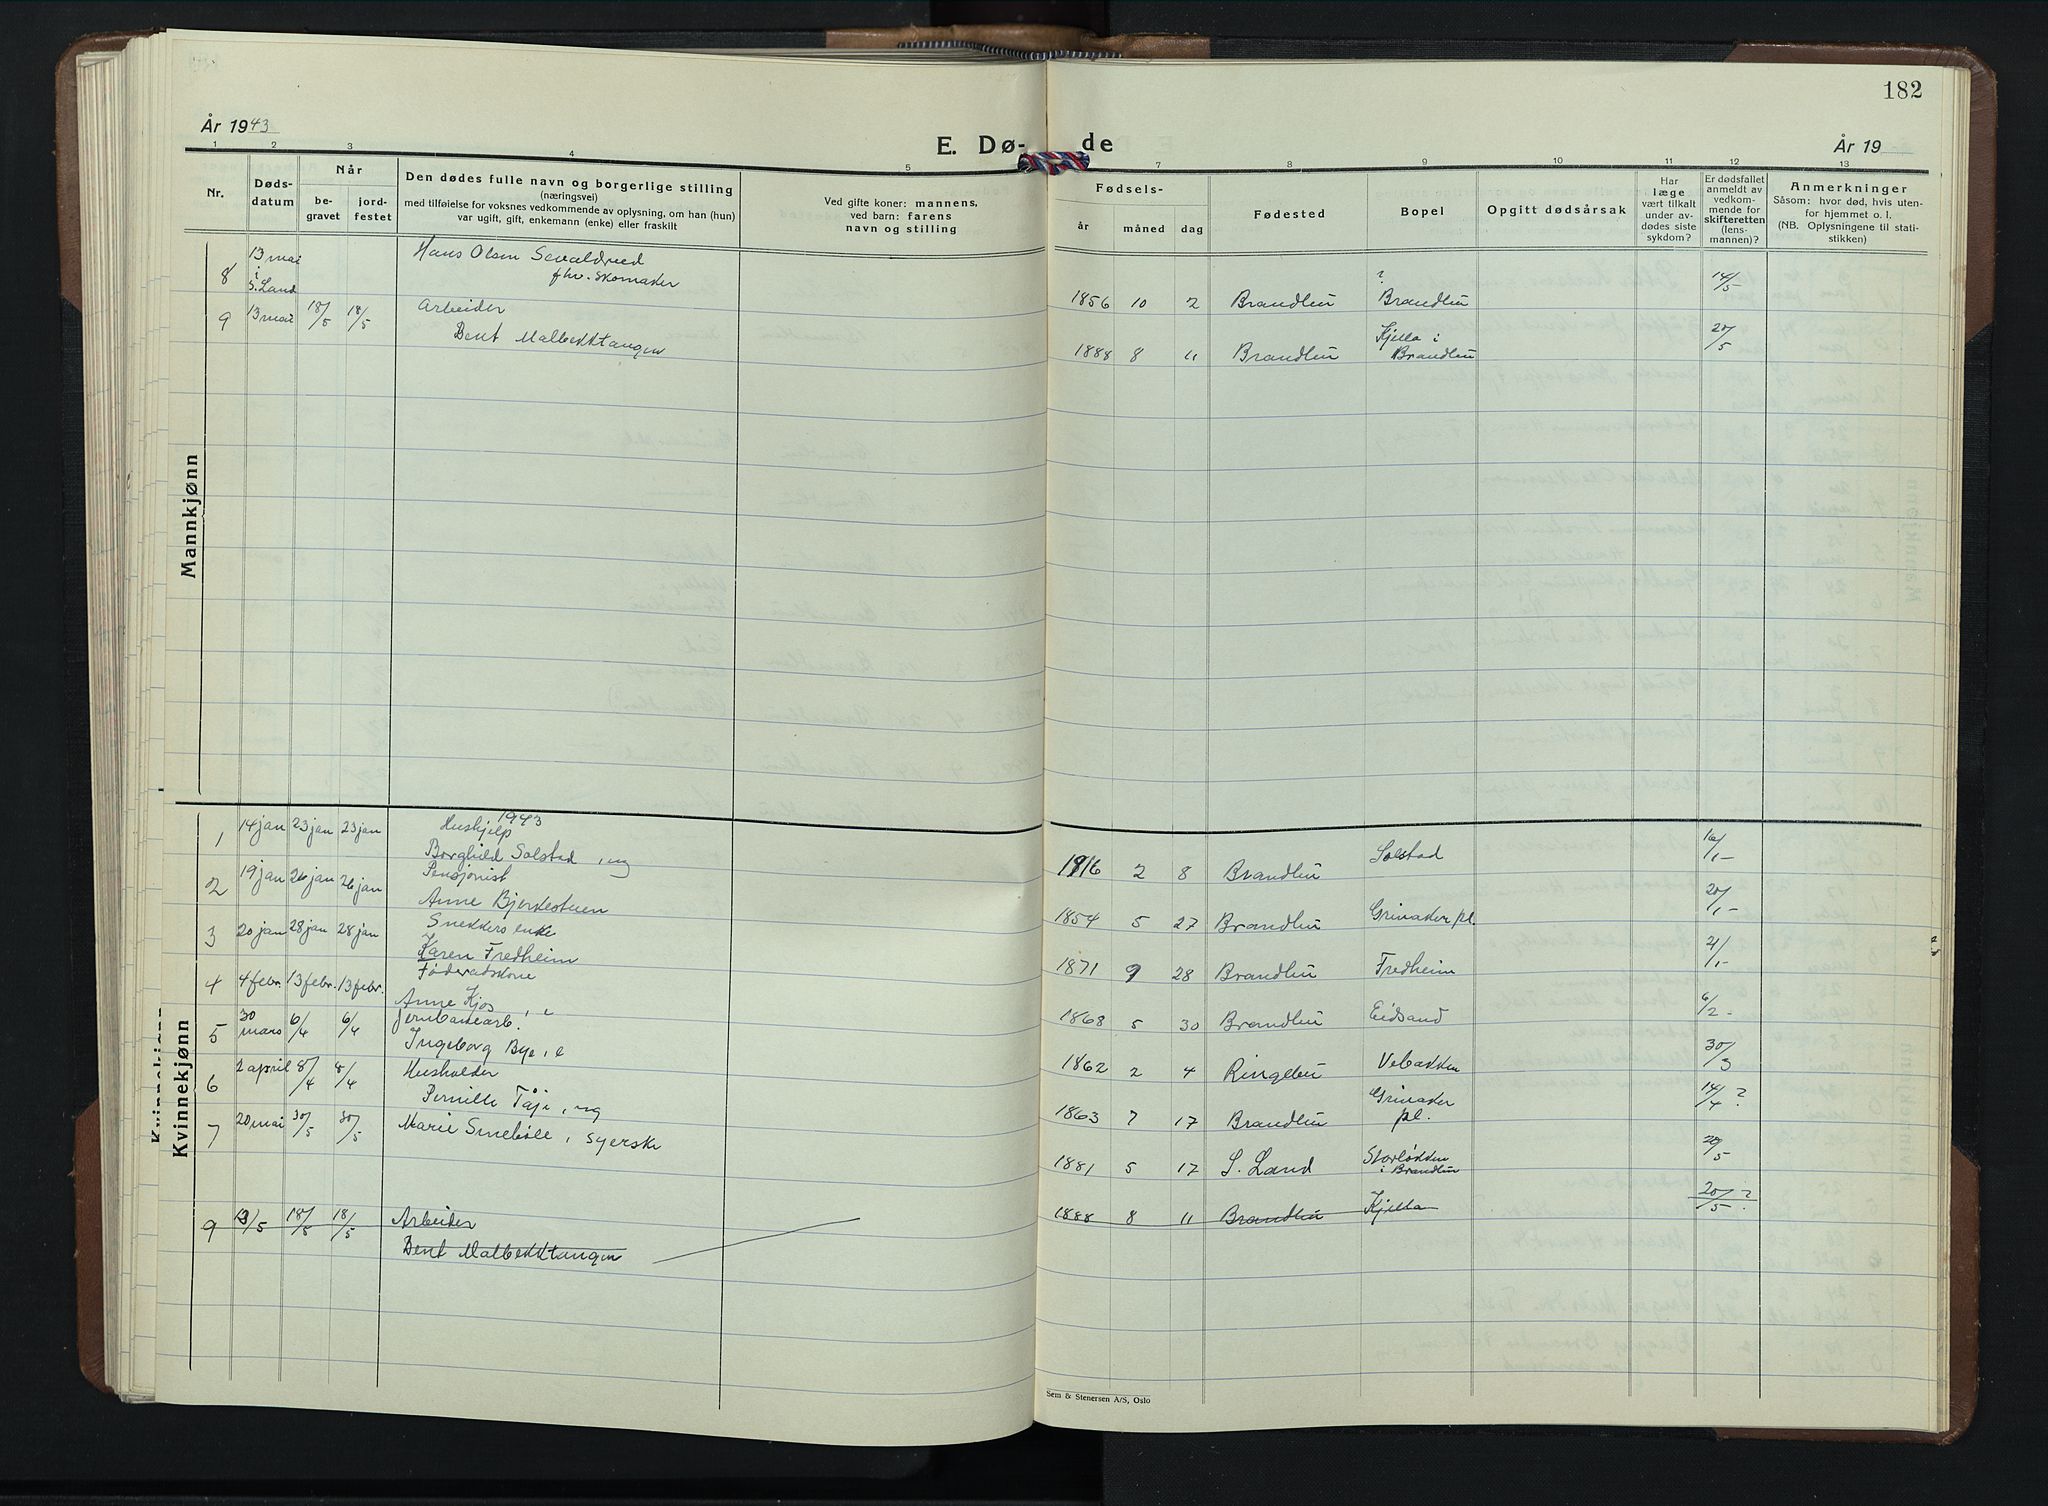 182
År 1943
E. Dø- de
År 19
1 2 3 4 5 7 8 9 10 11 12 13
Nr.
Døds-
datum
Når
be-
gravet
jord-
festet
Den dødes fulle navn og borgerlige stilling
(næringsvei)
med tilføielse for voksnes vedkommende av oplysning, om han (hun)
var ugift, gift, enkemann (enke) eller fraskilt
Ved gifte koner: mannens,
ved barn: farens
navn og stilling
Fødsels-
år måned dag
Fødested
Bopel
Opgitt dødsårsak
Har
læge
vært tilkalt
under av-
dødes siste
sykdom?
Er dødsfallet
anmeldt av
vedkom-
mende for
skifteretten
(lens-
mannen)?
Anmerkninger
Såsom: hvor død, hvis uten-
for hjemmet o. l.
(NB. Oplysningene til stati-
stikken)
Mannkjønn
8 13 mai i S. Land Hans Olsen Sevaldrud
fhv. skomaker 1856 10 2 Brandbu ? Brandbu 14/5
9 13 mai 18/5 18/5 Arbeider
Bent Malbekktangen 1888 8 11 Brandbu Kjilla i Brandbu 20/5
Kvinnekjønn
Kvinnekjønn
1943
1 14 jan 23 jan 23 jan Hushjelp
Borghild Solstad, ug 1916 2 8 Brandbu Solstad 16/1-
2 19 jan 26 jan 26 jan Pensjonist
Anne Bjerkestuen 1854 5 27 Brandbu Grinaker pl. 20/1-
3 20 jan 28 jan 28 jan Snekkers enke
Karen Fredheim 1871 9 28 Brandbu Fredheim 21/1-
4 4 febr. 13 febr. 13 febr. Føderadskone
Anne Kjos, e 1868 5 30 Brandbu Eidsand 6/2-
5 30 mars 6/4 6/4 jernbanearb.
Ingeborg Bye, e 1862 2 4 Ringebu Vebakken 30/3
6 2 april 8/4 8/4 Husholder
Pernille Tåje, ug 1863 7 17 Brandbu Grinaker pl. 14/4 ?
7 20 mai 30/5 30/5 Marie Smebøle, syerske 1881 5 17 S. Land Storløkken i Brandbu 20/5
9 13/5 18/5 18/5 Arbeider
Bent Malbekktangen 1888 8 11 Brandbu Kjilla 20/5 ?
Sem & Stenersen A/S, Oslo